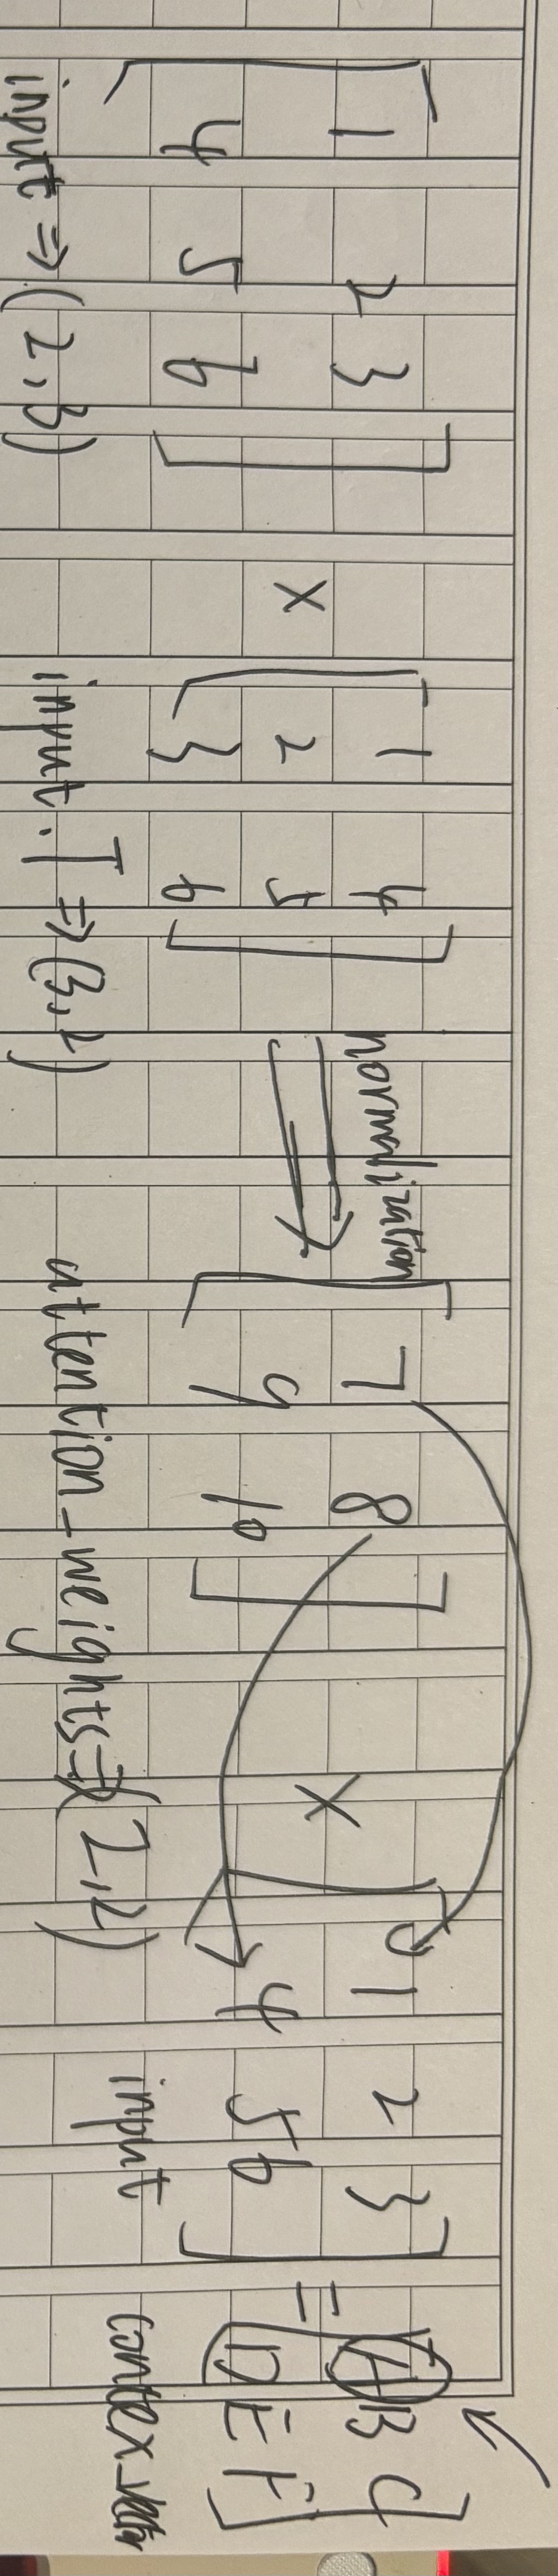 [1 2 3
4 5 6] × [1 4
2 5
3 6] normalization ⇒ [7 8
9 10] × [1 2 3
4 5 6] = [A B C
D E F]
input ⇒ (2,3) input.T ⇒ (3,2) attention_weights ⇒ (2,2) input contex_vector